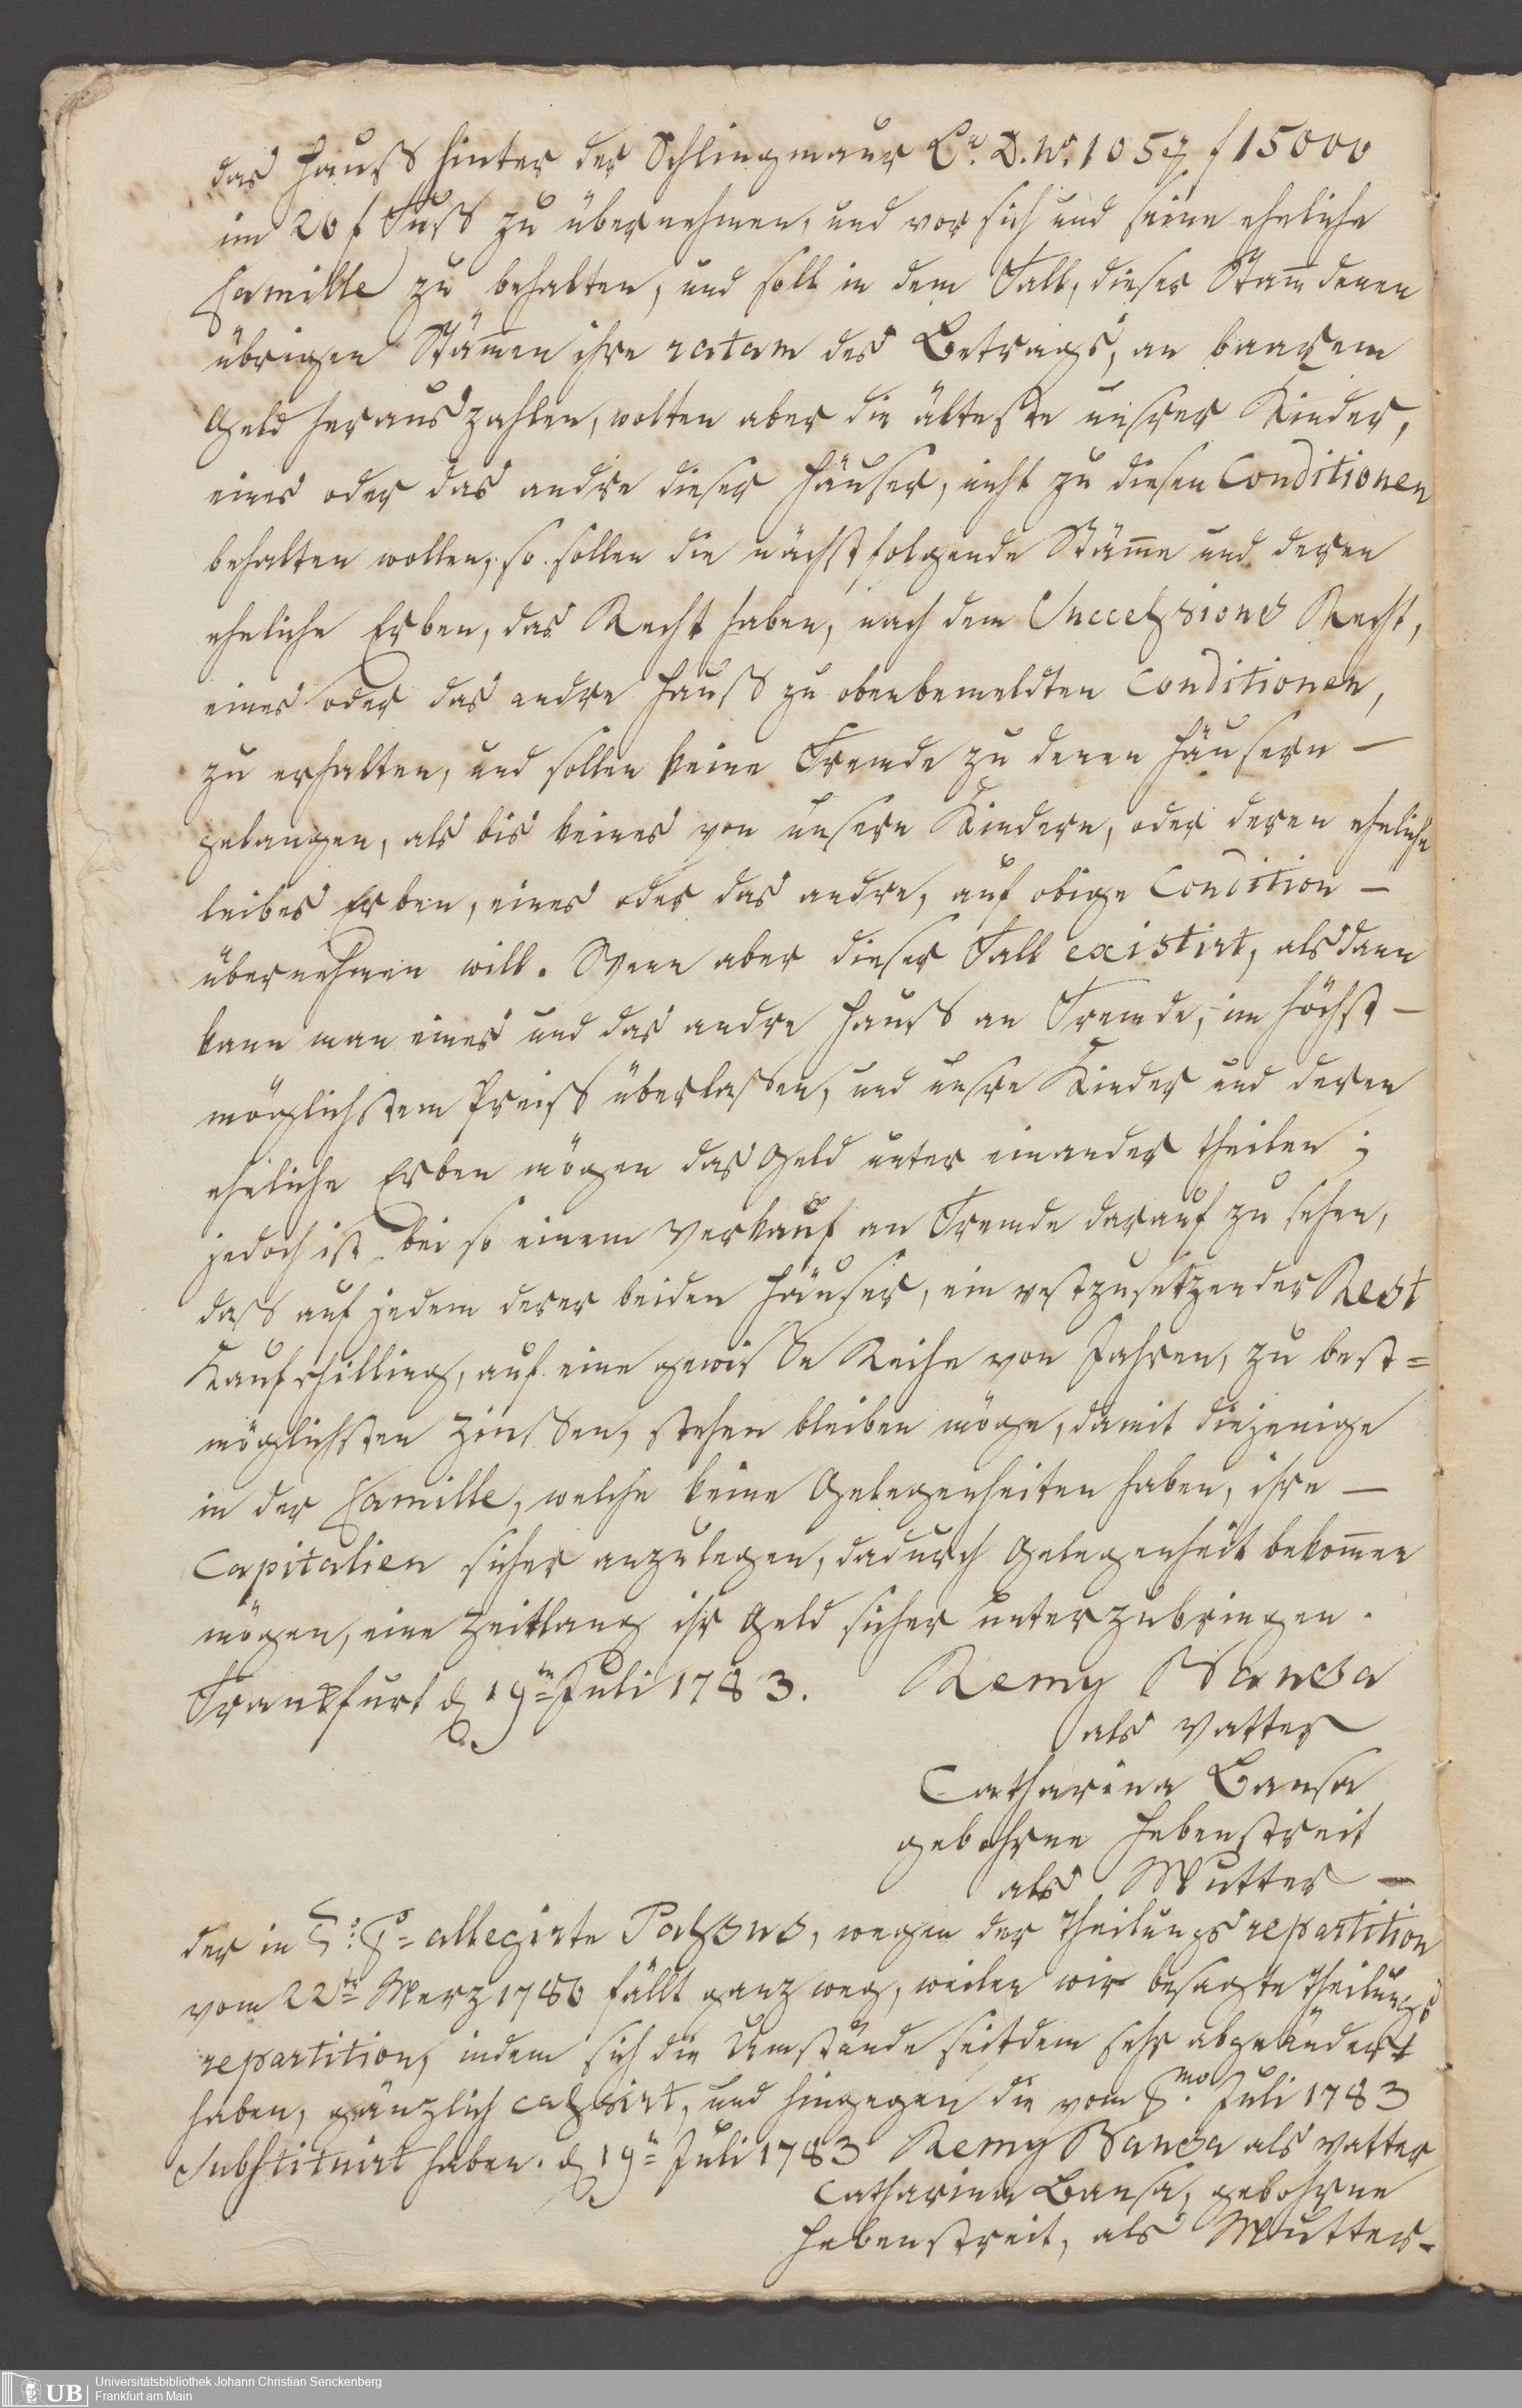 das Hauß hinter der Schlingmaur La. D. No. 1057 f 15000
im 20 f Fuß zu übernehmen, und vor sich und seine eheliche
Famille zu behalten, und soll in dem Fall, dieser Stam̅ denen
übrigen Stäm̅en ihre ratam des Betrags, an baarem
Geld heraus zahlen, wolten aber die älteste unsrer Kinder,
eines oder das andre dieser Häuser, nicht zu diesen Conditionen
behalten wollen, so sollen die nächstfolgende Stäm̅e und deren
eheliche Erben, das Recht haben, nach dem Successions Recht,
eines oder das andre Hauß zu obenbemeldten Conditionen,
zu erhalten, und sollen keine Fremde zu denen Häusern –
gelangen, als bis keines von unsern Kindern, oder deren eheliche
leibes Erben, eines oder das andre, auf obige Condition –
übernehmen will. Wenn aber dieser Fall existirt, alsdann
kann man eines und das andre Hauß an Fremde, im höchst –
möglichstem Preiß überlaßen, und unsre Kinder und deren
eheliche Erben mögen das Geld unter einander theilen;
jedoch ist bei so einem Verkauf an Fremde darauf zu sehen,
daß auf jedem derer beiden Häuser, ein vestzusetzender Rest
Kaufschilling, auf eine gewiße Reihe von Jahren, zu best=
möglichsten Zinßen, stehen bleiben möge, damit diejenige
in der Famille, welche keine Gelegenheiten haben, ihre –
Capitalien sicher anzulegen, dadurch Gelegenheit bekom̅en
mögen, eine Zeitlang ihr Geld sicher unterzubringen.
Frankfurt d 19ten Juli 1783. Remy Bansa
als Vatter
Catharina Bansa
gebohrne Hebenstreit
als Mutter –
der in allegirte Passus, wegen der Theilungs repartition
vom 22ten Merz 1780 fällt ganz weg, weilen wir besagte Theilungs
repartition, indem sich die Umstände seitdem sehr abgeändert
haben, gänzlich cassirt, und hingegen die vom Juli 1783
substituirt haben. d 19n Juli 1783 Remy Bansa als Vatter
Catharina Bansa, gebohrne
Hebenstreit, als Mutter.
UB Universitätsbibliothek Johann Christian Senckenberg
Frankfurt am Main